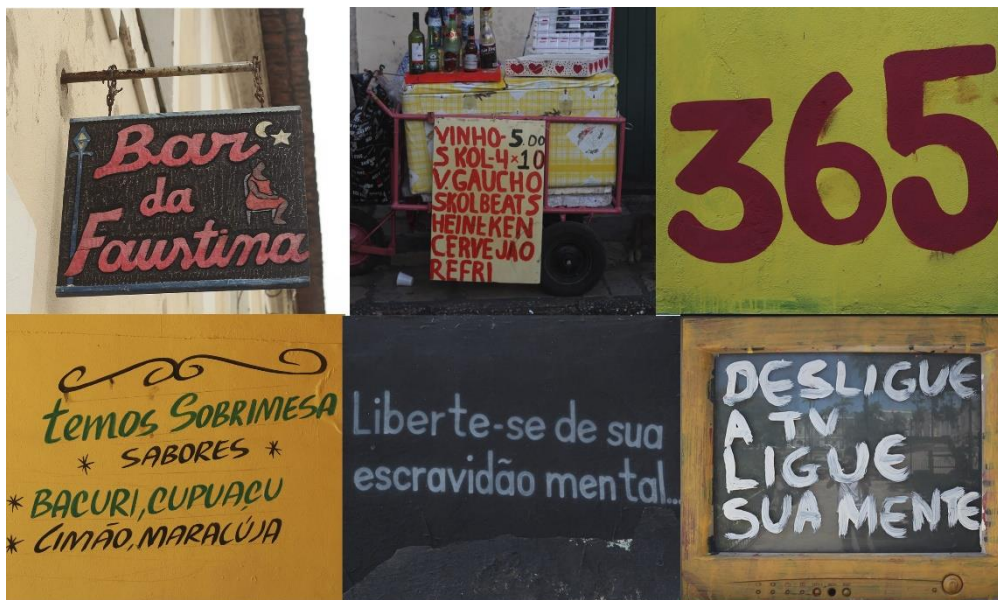 Bar
da
Faustina
VINHO-5.00
SKOL-4x10
V.GAUCHO
SKOLBEATS
HEINEKEN
CERVEJAO
REFRI
365
temos SOBRIMESA
* SABORES *
* BACURI, CUPUAÇU
* CIMÃO, MARACÚJA
Liberte-se de sua
escravidão mental...
DESLIGUE
A TV
LIGUE
SUA MENTE